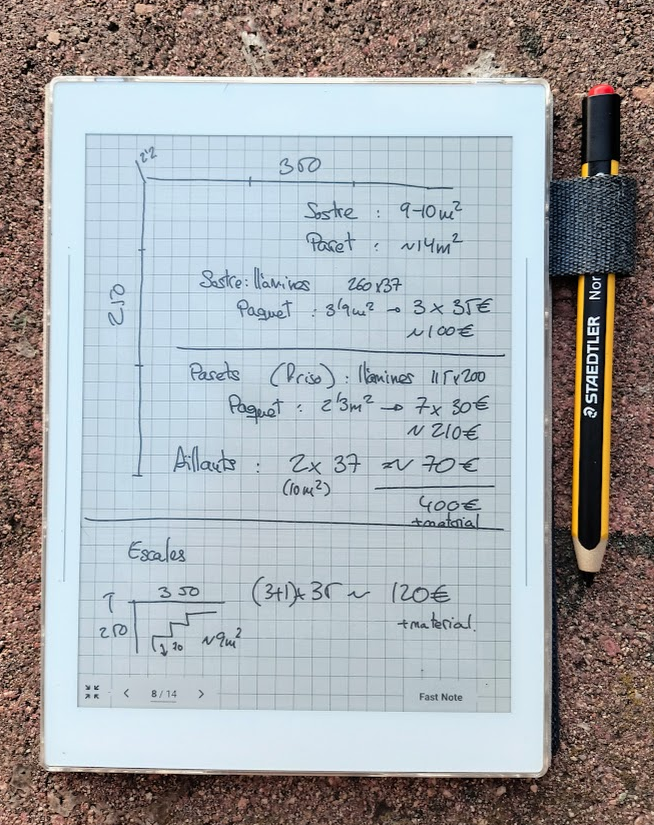 2'2
350
Sostre : 9-10m²
Paret : ~14m²
250
Sostre: llàmines 260x37
Paquet : 3'9m² → 3 x 35€
~100€
Parets (Friso) : llàmines 115x200
Paquet : 2'3m² → 7 x 30€
~ 210€
Aïllants : 2x 37 ≈~ 70€
(10m²)
400€
+material
Escales
350
250
20
~9m²
(3+1)x 35 ~ 120€
+material.
8 / 14
Fast Note
STAEDTLER Nor